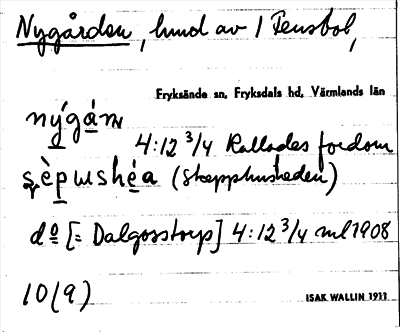 Nygården, hmd av 1 Tensbol,
Fryksände sn, Fryksdals hd, Värmlands län
nýgán
4:12 3/4 Kallades fordom
sèpɯshéa (Skepphusheden)
dº [= Dalgosstorp] 4:12 3/4 ml 1908
10(9)
ISAK WALLIN 1911